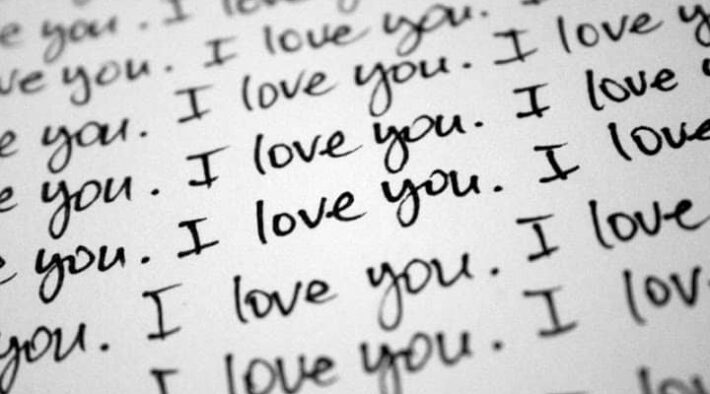 e you. I love
ve you. I love you.
e you. I love you. I love y
e you. I love you. I love
you. I love you. I love
you. I love you. I love
I love you. I lov
lo